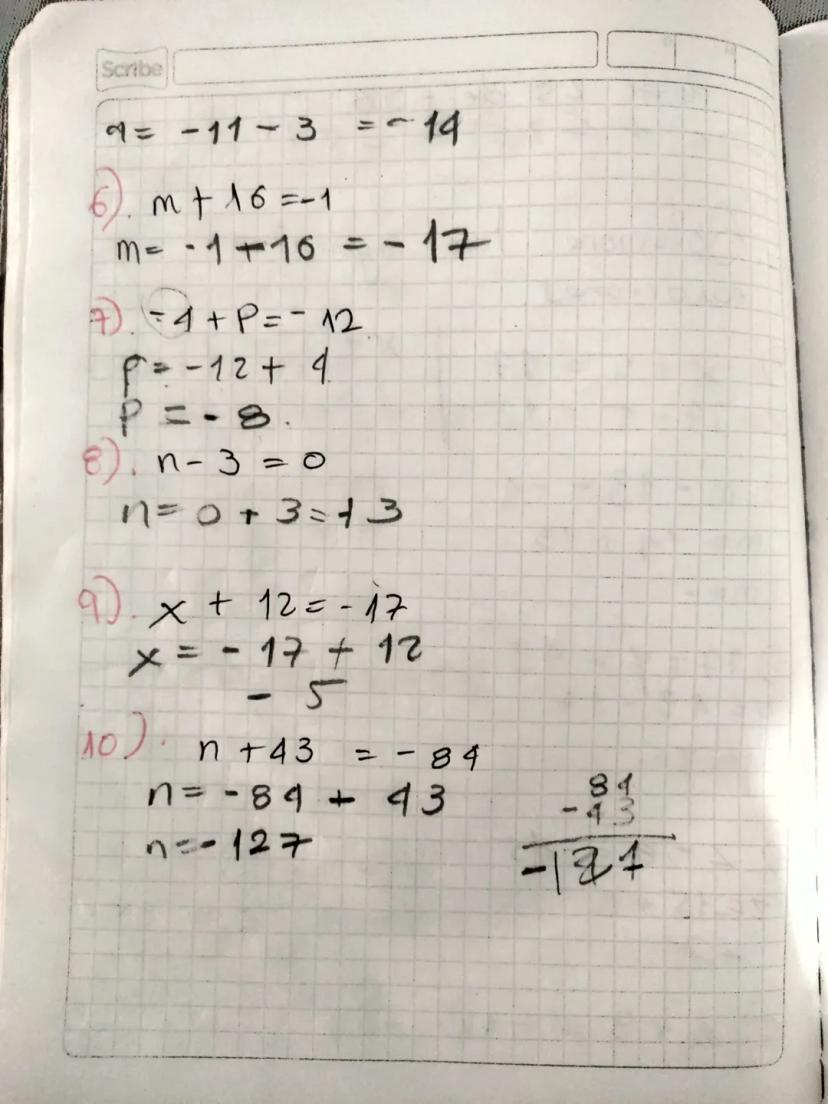 Scribe
a = -11 - 3 = -14
6). m + 16 = -1
m = -1 - 16 = -17
7). -4 + P = -12
P = -12 + 4
P = -8.
8). n - 3 = 0
n = 0 + 3 = +3
9). x + 12 = -17
x = -17 + 12
- 5
10). n + 43 = -84
n = -84 - 43
n = -127
84
-43
-127